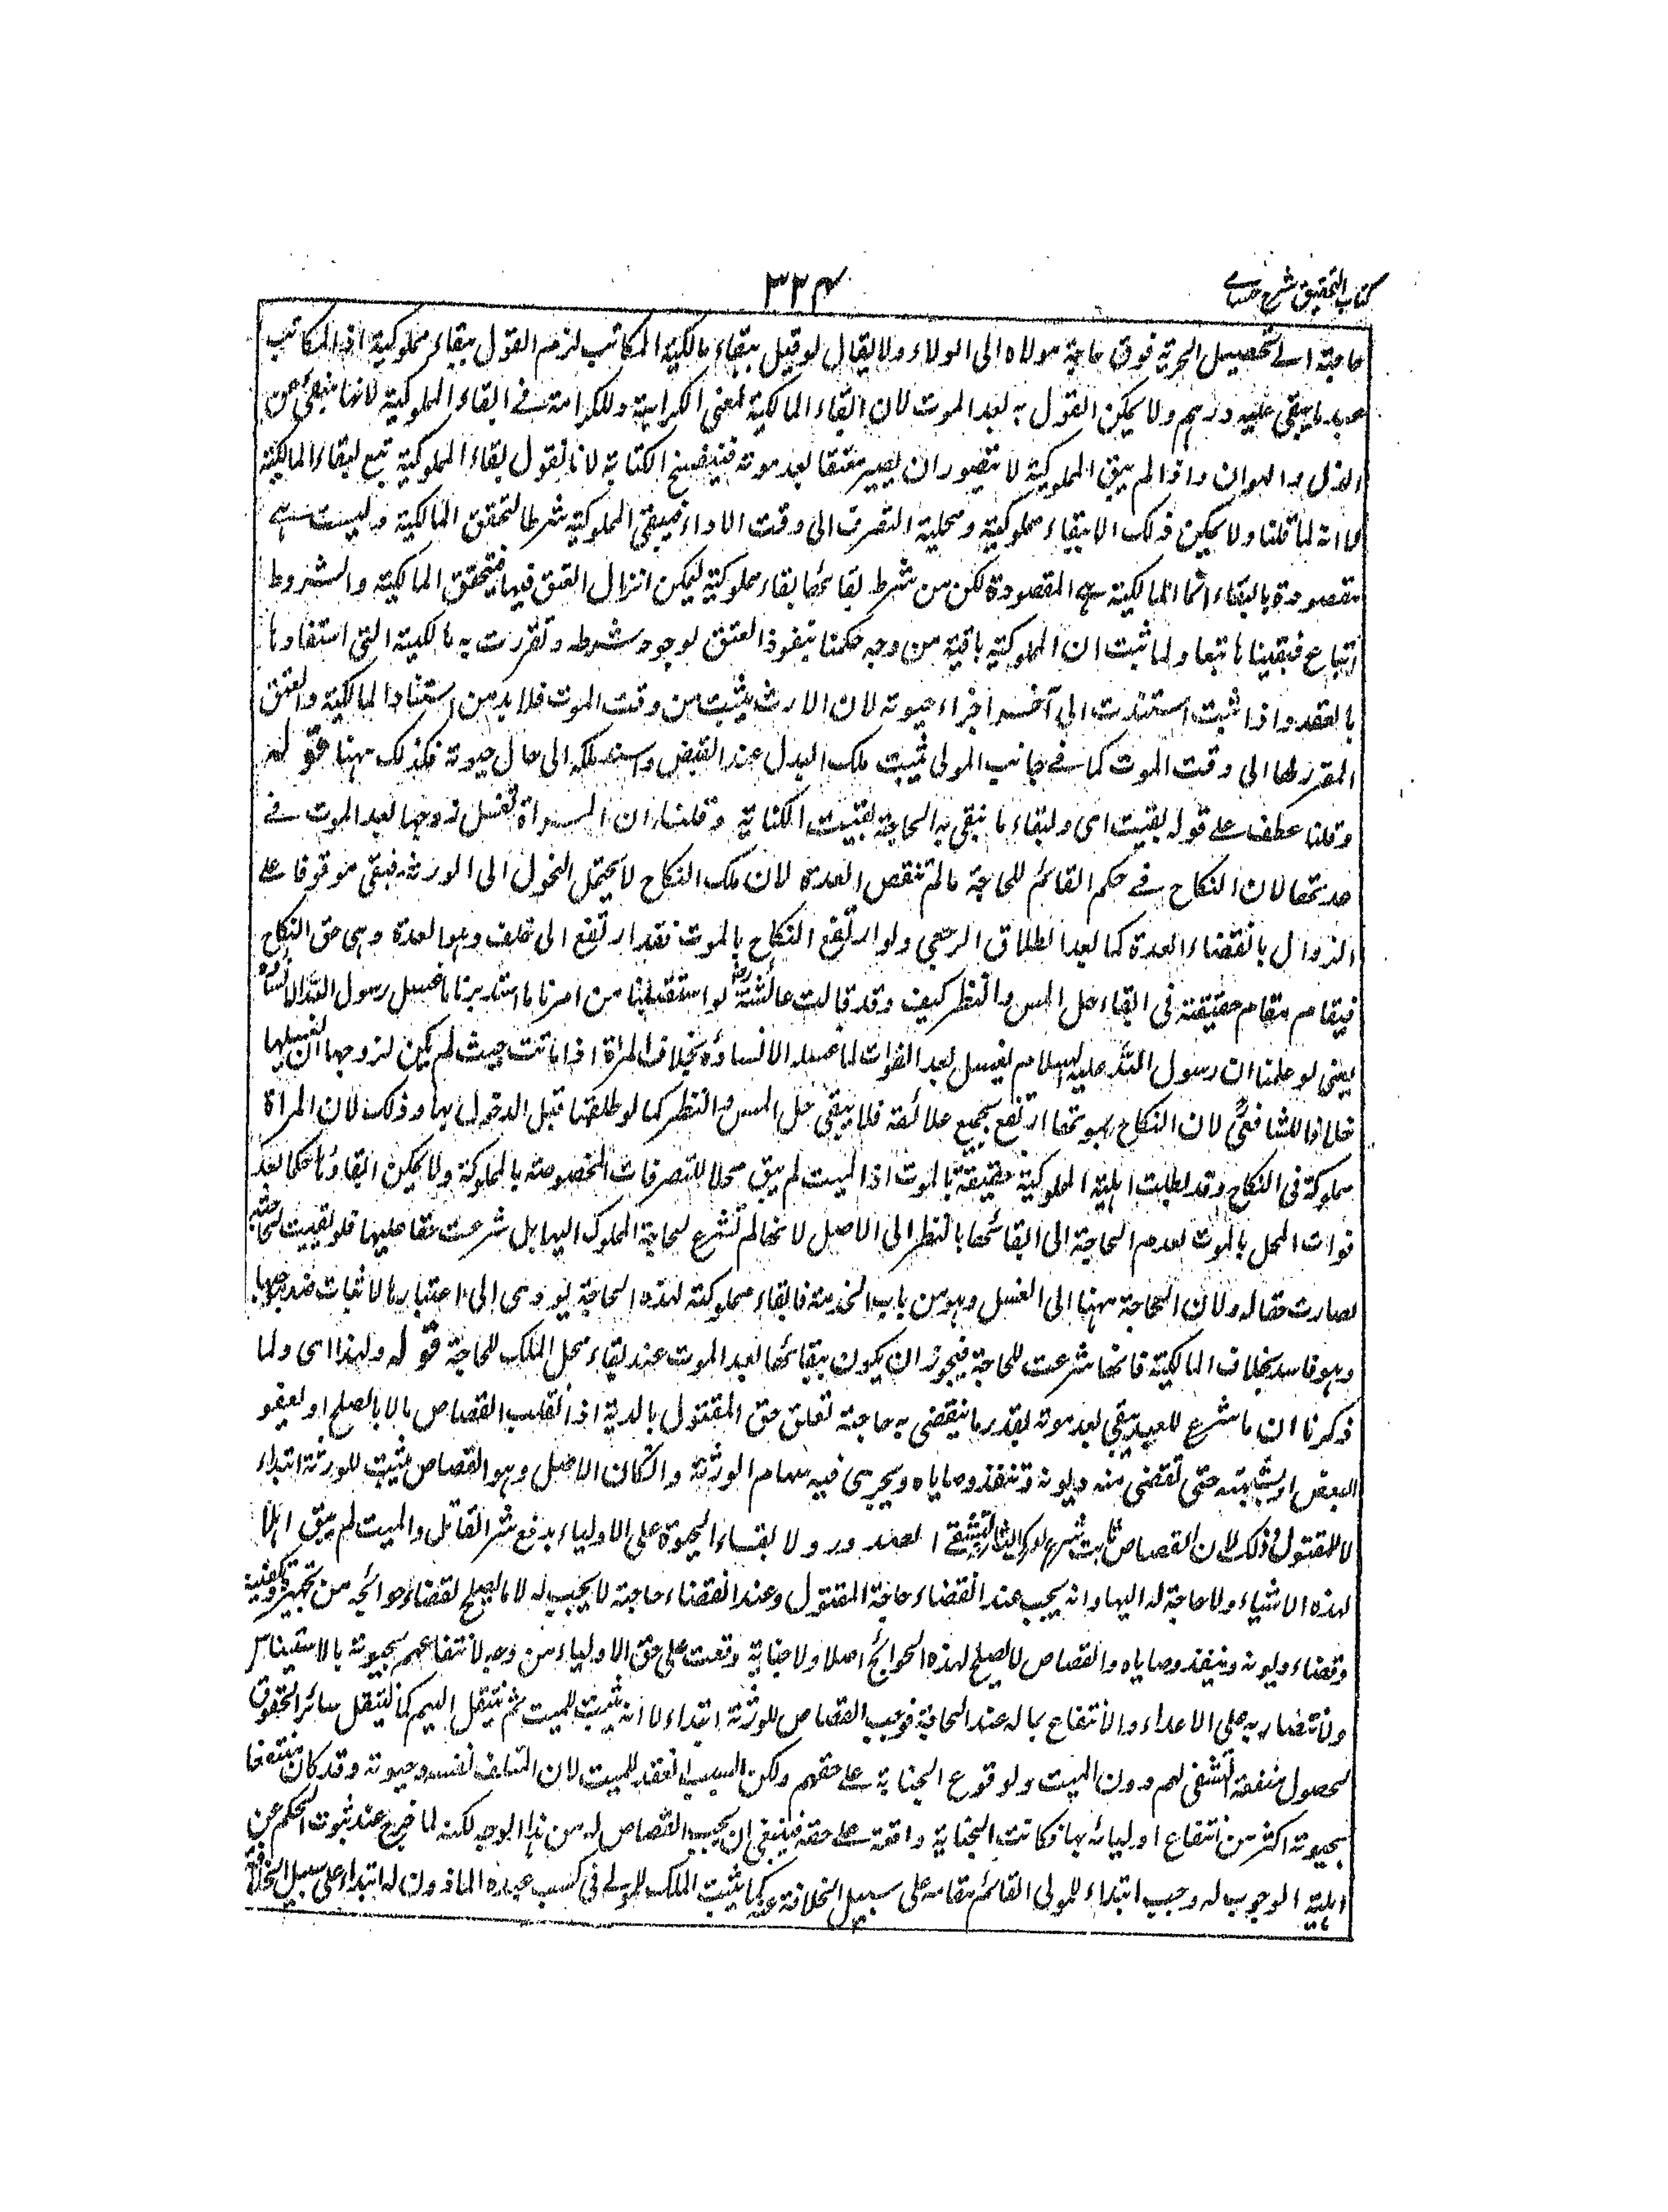 كتاب التحقيق شرح حسامے
٣٣٤
حاجته الے تحصيل الحرية فوق حاجة مولاه الى الولاء ولا يقال لو قيل ببقاء مالكية المكاتب لزم القول ببقاء مملوكية اذ المكاتب
عبد ما بقى عليه درهم ولا يمكن القول به بعد الموت لان ابقاء المالكية لمعنى الكرامة ولا كرامة فے ابقاء المملوكية لانها منبئ عن
الذل والهوان واذا لم يبق المملوكية لا يتصور ان يصير معتقا بعد موته فينفسخ الكتابة لانا نقول بقاء المملوكية تبع لبقاء المالكية
لا انه لما قلنا ولا يمكن ذلك الا ببقاء مملوكية ومحلية التصرف الى وقت الاداء فيبقى المملوكية شرطا لتحقق المالكية وليست هے
مقصودة بالبقاء انما المالكية هے المقصودة لكن من شرط بقائها بقاء مملوكية ليمكن انزال العتق فيها فيتحقق المالكية والشروط
اتباع فبقيناها تبعا ولما ثبت ان المملوكية باقية من وجه حكمنا بنفوذ العتق لوجود شرطه وتقررت به مالكية التى استفادها
بالعقد واذا ثبت استندت الى آخر اجزاء حيوته لان الارث يثبت من وقت الموت فلا بد من استناد المالكية والعتق
المقرر لها الى وقت الموت كما فے جانب المولى يثبت ملك البدل عند القبض واستند ملكه الى حال حيوته فكذلك ههنا قوله
وقلنا عطف علے قوله بقيت اى ولبقاء ما ينقى به الحاجة بقيت الكتابة وقلنا ان المرأة تغسل زوجها بعد الموت فے
عدتها لان النكاح فے حكم القائم للحاجة ما لم تنقض العدة لان ملك النكاح لا يحتمل التحول الى الورثة فبقى موقوفا علے
الزوال بانقضاء العدة كما بعد الطلاق الرجعي ولو ارتفع النكاح بالموت فقد ارتفع الى خلف وهو العدة وهى حق النكاح
فيقام مقام حقيقته فى ابقاء حل المس والنظر كيف وقد قالت عائشة رض لو استقبلنا من امرنا ما استدبرنا ما غسل رسول الله الا نساؤه
يعنى لو علمنا ان رسول الله عليه السلام يغسل بعد الفوات لما غسله الا نساؤه بخلاف المرأة اذا ماتت حيث لم يكن لزوجها ان يغسلها
خلافا للشافعى لان النكاح بموتها ارتفع بجميع علائقه فلا يبقى حل المس والنظر كما لو طلقها قبل الدخول بها وذلك لان المرأة
مملوكة فى النكاح وقد بطلت اهلية المملوكية حقيقة بالموت اذ الميت لم يبق محلا للتصرفات المخصوصة بالمملوكة ولا يمكن ابقاؤها حكما بعد
فوات المحل بالموت لعدم الحاجة الى ابقائها بالنظر الى الاصل لانها لم تشرع لحاجة المملوك اليها بل شرعت حقا عليها فلو بقيت لحاجته
لصارت حقا له ولان الحاجة ههنا الى الغسل وهو من باب الخدمة فابقاء مملوكته لهذه الحاجة يودى الى اعتبارها لاثبات ضد موجبها
وهو فاسد بخلاف المالكية فانها شرعت للحاجة فيجوز ان يكون ببقائها بعد الموت عند بقاء محل الملك للحاجة قوله ولهذا اى ولما
ذكرنا ان ما شرع للعبد يبقى بعد موته بقدر ما ينقضى به حاجته تعلق حق المقتول بالدية اذا انقلب القصاص مالا بالصلح او بعفو
البعض او بشبهة حتى تقضى منه ديونه وتنفذ وصاياه ويجرى فيه سهام الورثة وان كان الاصل وهو القصاص يثبت للورثة ابتداء
لا للمقتول وذلك لان القصاص ثابت شرع لدرك الثار وتشفى الصدور ولابقاء الحيوة على الاولياء بدفع شر القاتل والميت لم يبق اهلا
لهذه الاشياء ولا حاجة له اليها وانه يجب عند انقضاء حاجة المقتول وعند انقضاء حاجته لا يجب له الا ما يصلح لقضاء حوائجه من تجهيزه وتكفينه
وقضاء ديونه وتنفيذ وصاياه والقصاص لا يصلح لهذه الحوائج اصلا ولا جناية وقعت على حق الاولياء من وجه لانتفاعهم بحيوته بالاستيناس
والانتصار به على الاعداء والانتفاع بماله عند الحاجة فوجب القصاص للورثة ابتداء لا انه يثبت للميت ثم ينتقل اليهم كما ينتقل سائر الحقوق
لحصول منفعة التشفى لهم دون الميت ولوقوع الجناية علے حقهم ولكن السبب انعقد للميت لان المتلف نفسه وحيوته وقد كان منتفعا
بحيوته اكثر من انتفاع اوليائه بها فكانت الجناية واقعة علے حقه فينبغى ان يجب القصاص له من هذا الوجه لكنه لما خرج عند ثبوت الحكم عن
اهلية الوجوب له وجب ابتداء للولى القائم مقامه على سبيل الخلافة عنه كما يثبت الملك للمولے فى كسب عبده الماذون له ابتداء على سبيل الخلافة